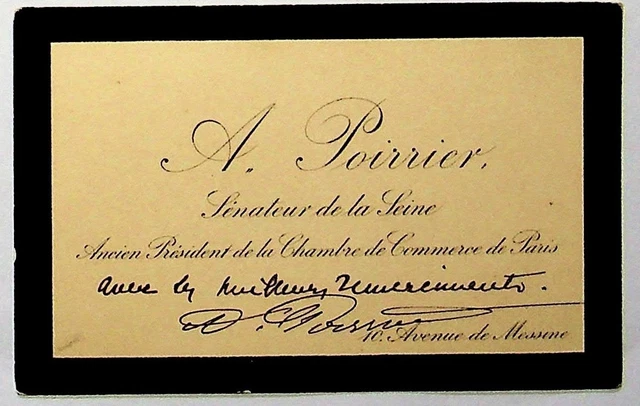 A. Poirrier,
Sénateur de la Seine
Ancien Président de la Chambre de Commerce de Paris
avec les meilleurs remerciements.
A. Poirrier
10. Avenue de Messine